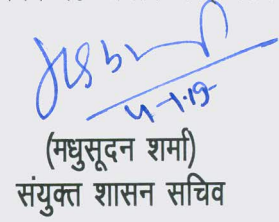 4-1-19
(मधुसूदन शर्मा)
संयुक्त शासन सचिव